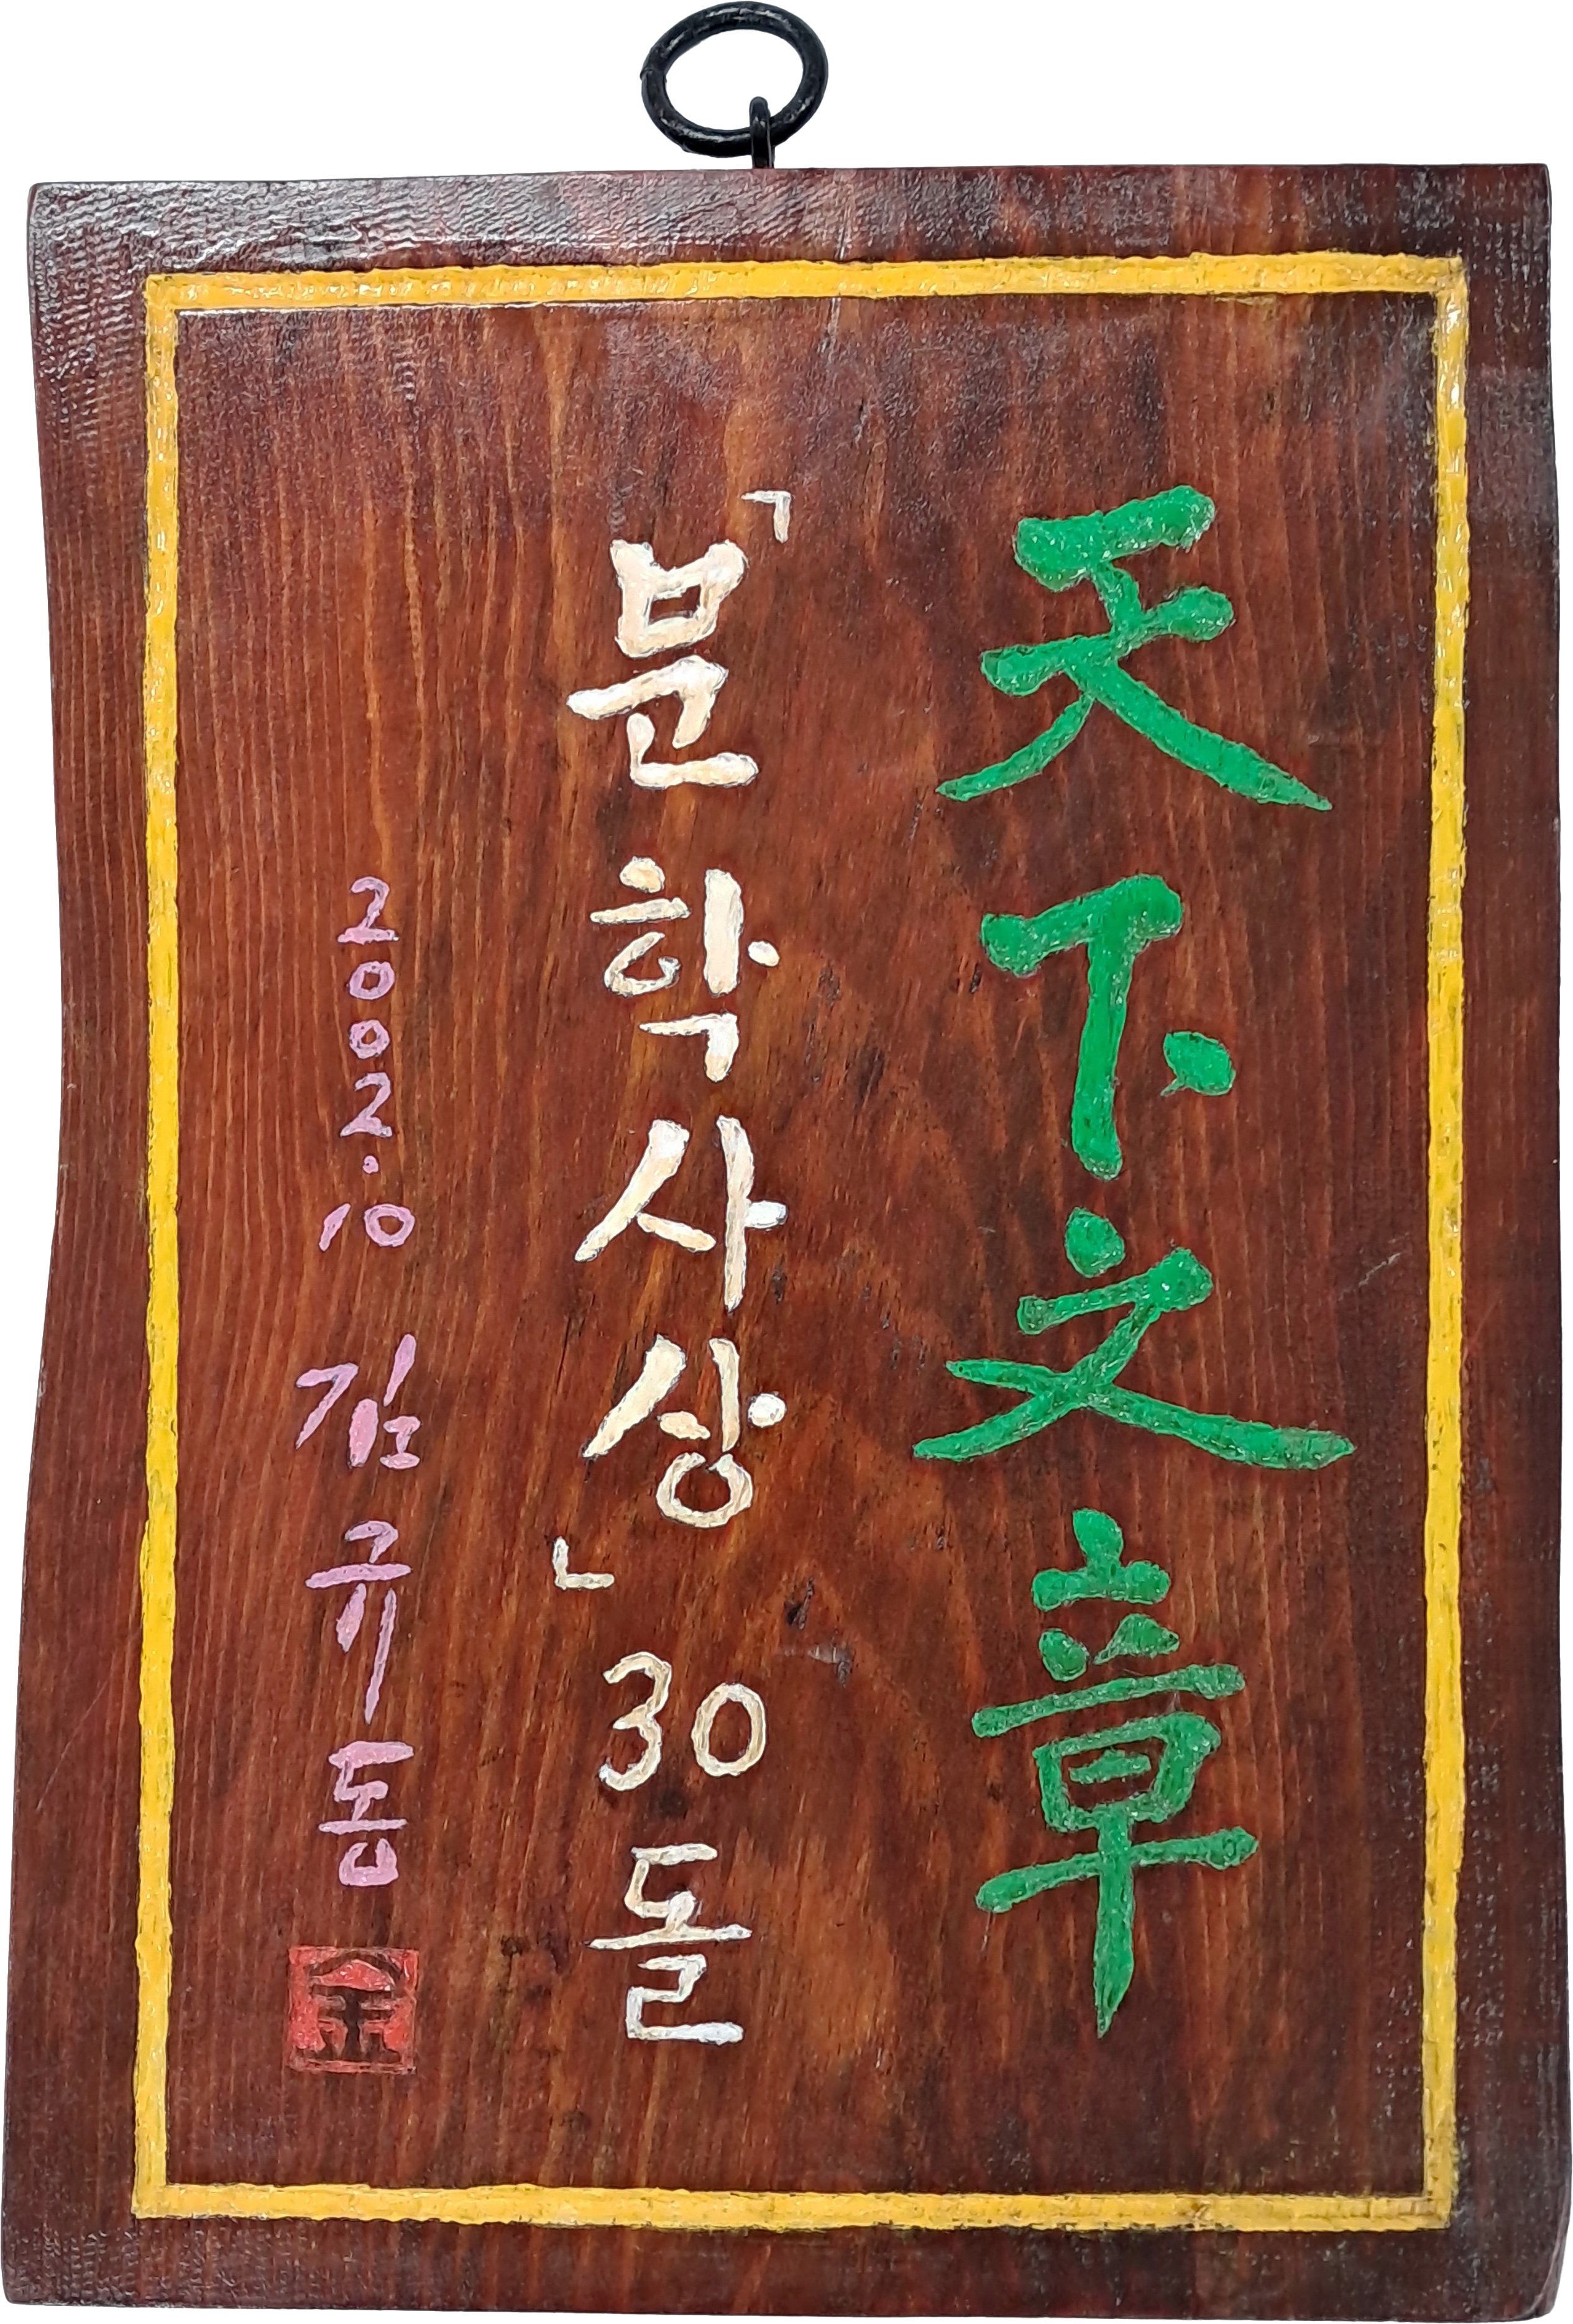 天下文章
「문학사상」 30돌
2002.10 김규동
金